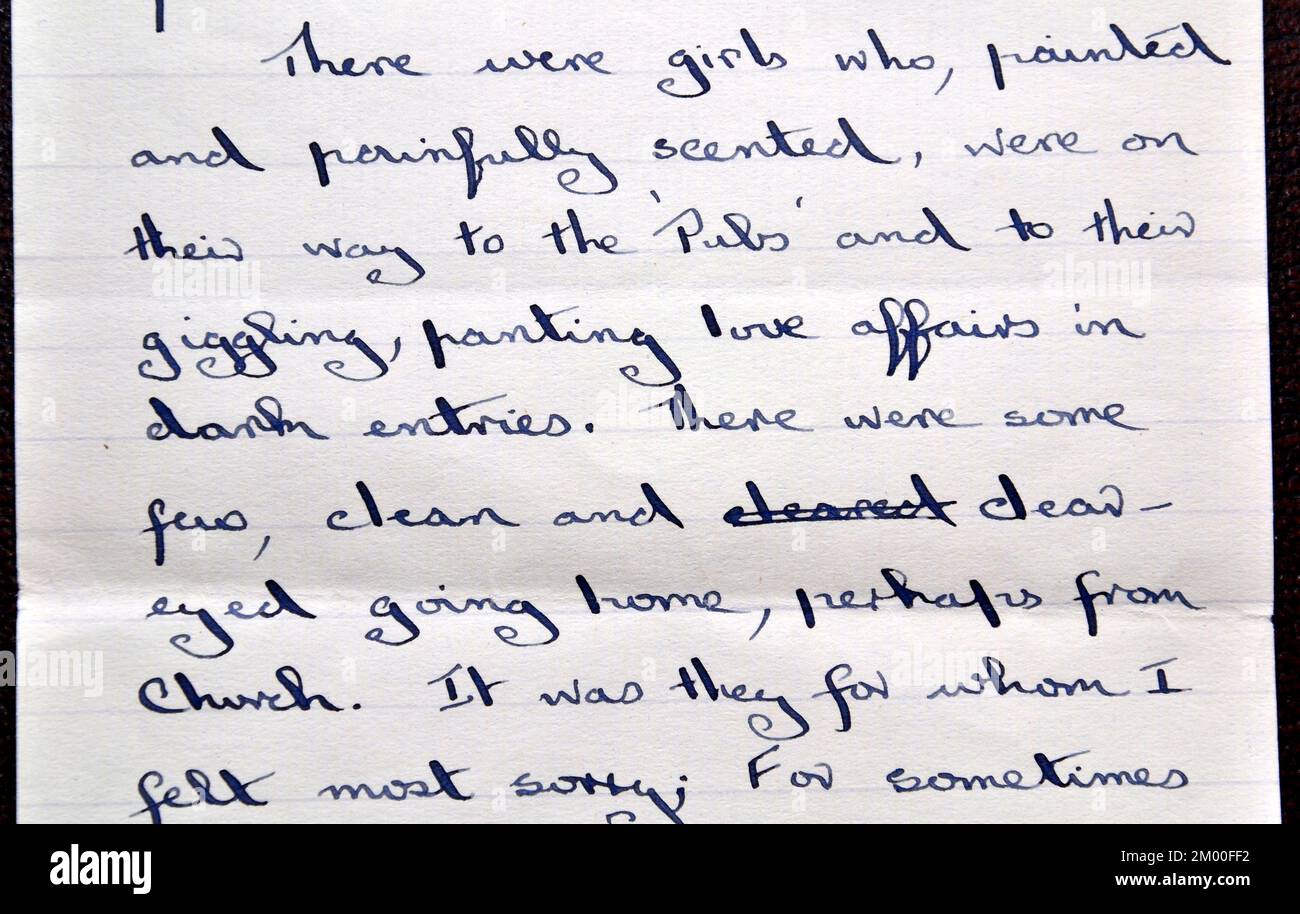 There were girls who, painted
and painfully scented, were on
their way to the 'Pubs' and to their
giggling, panting love affairs in
dark entries. There were some
few, clean and cleared clear-
eyed going home, perhaps from
Church. It was they for whom I
felt most sorry; For sometimes
alamy
Image ID: 2M00FF2
www.alamy.com